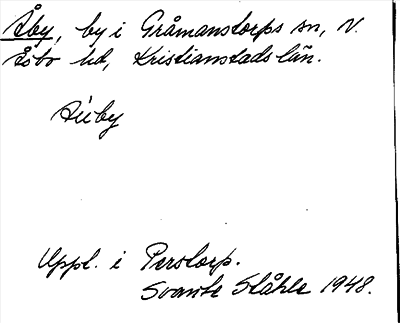 Åby, by i Gråmanstorps sn, N.
Åsbo hd, Kristianstads län.
Åúby
Uppl. i Perstorp.
Svante Ståhle 1948.